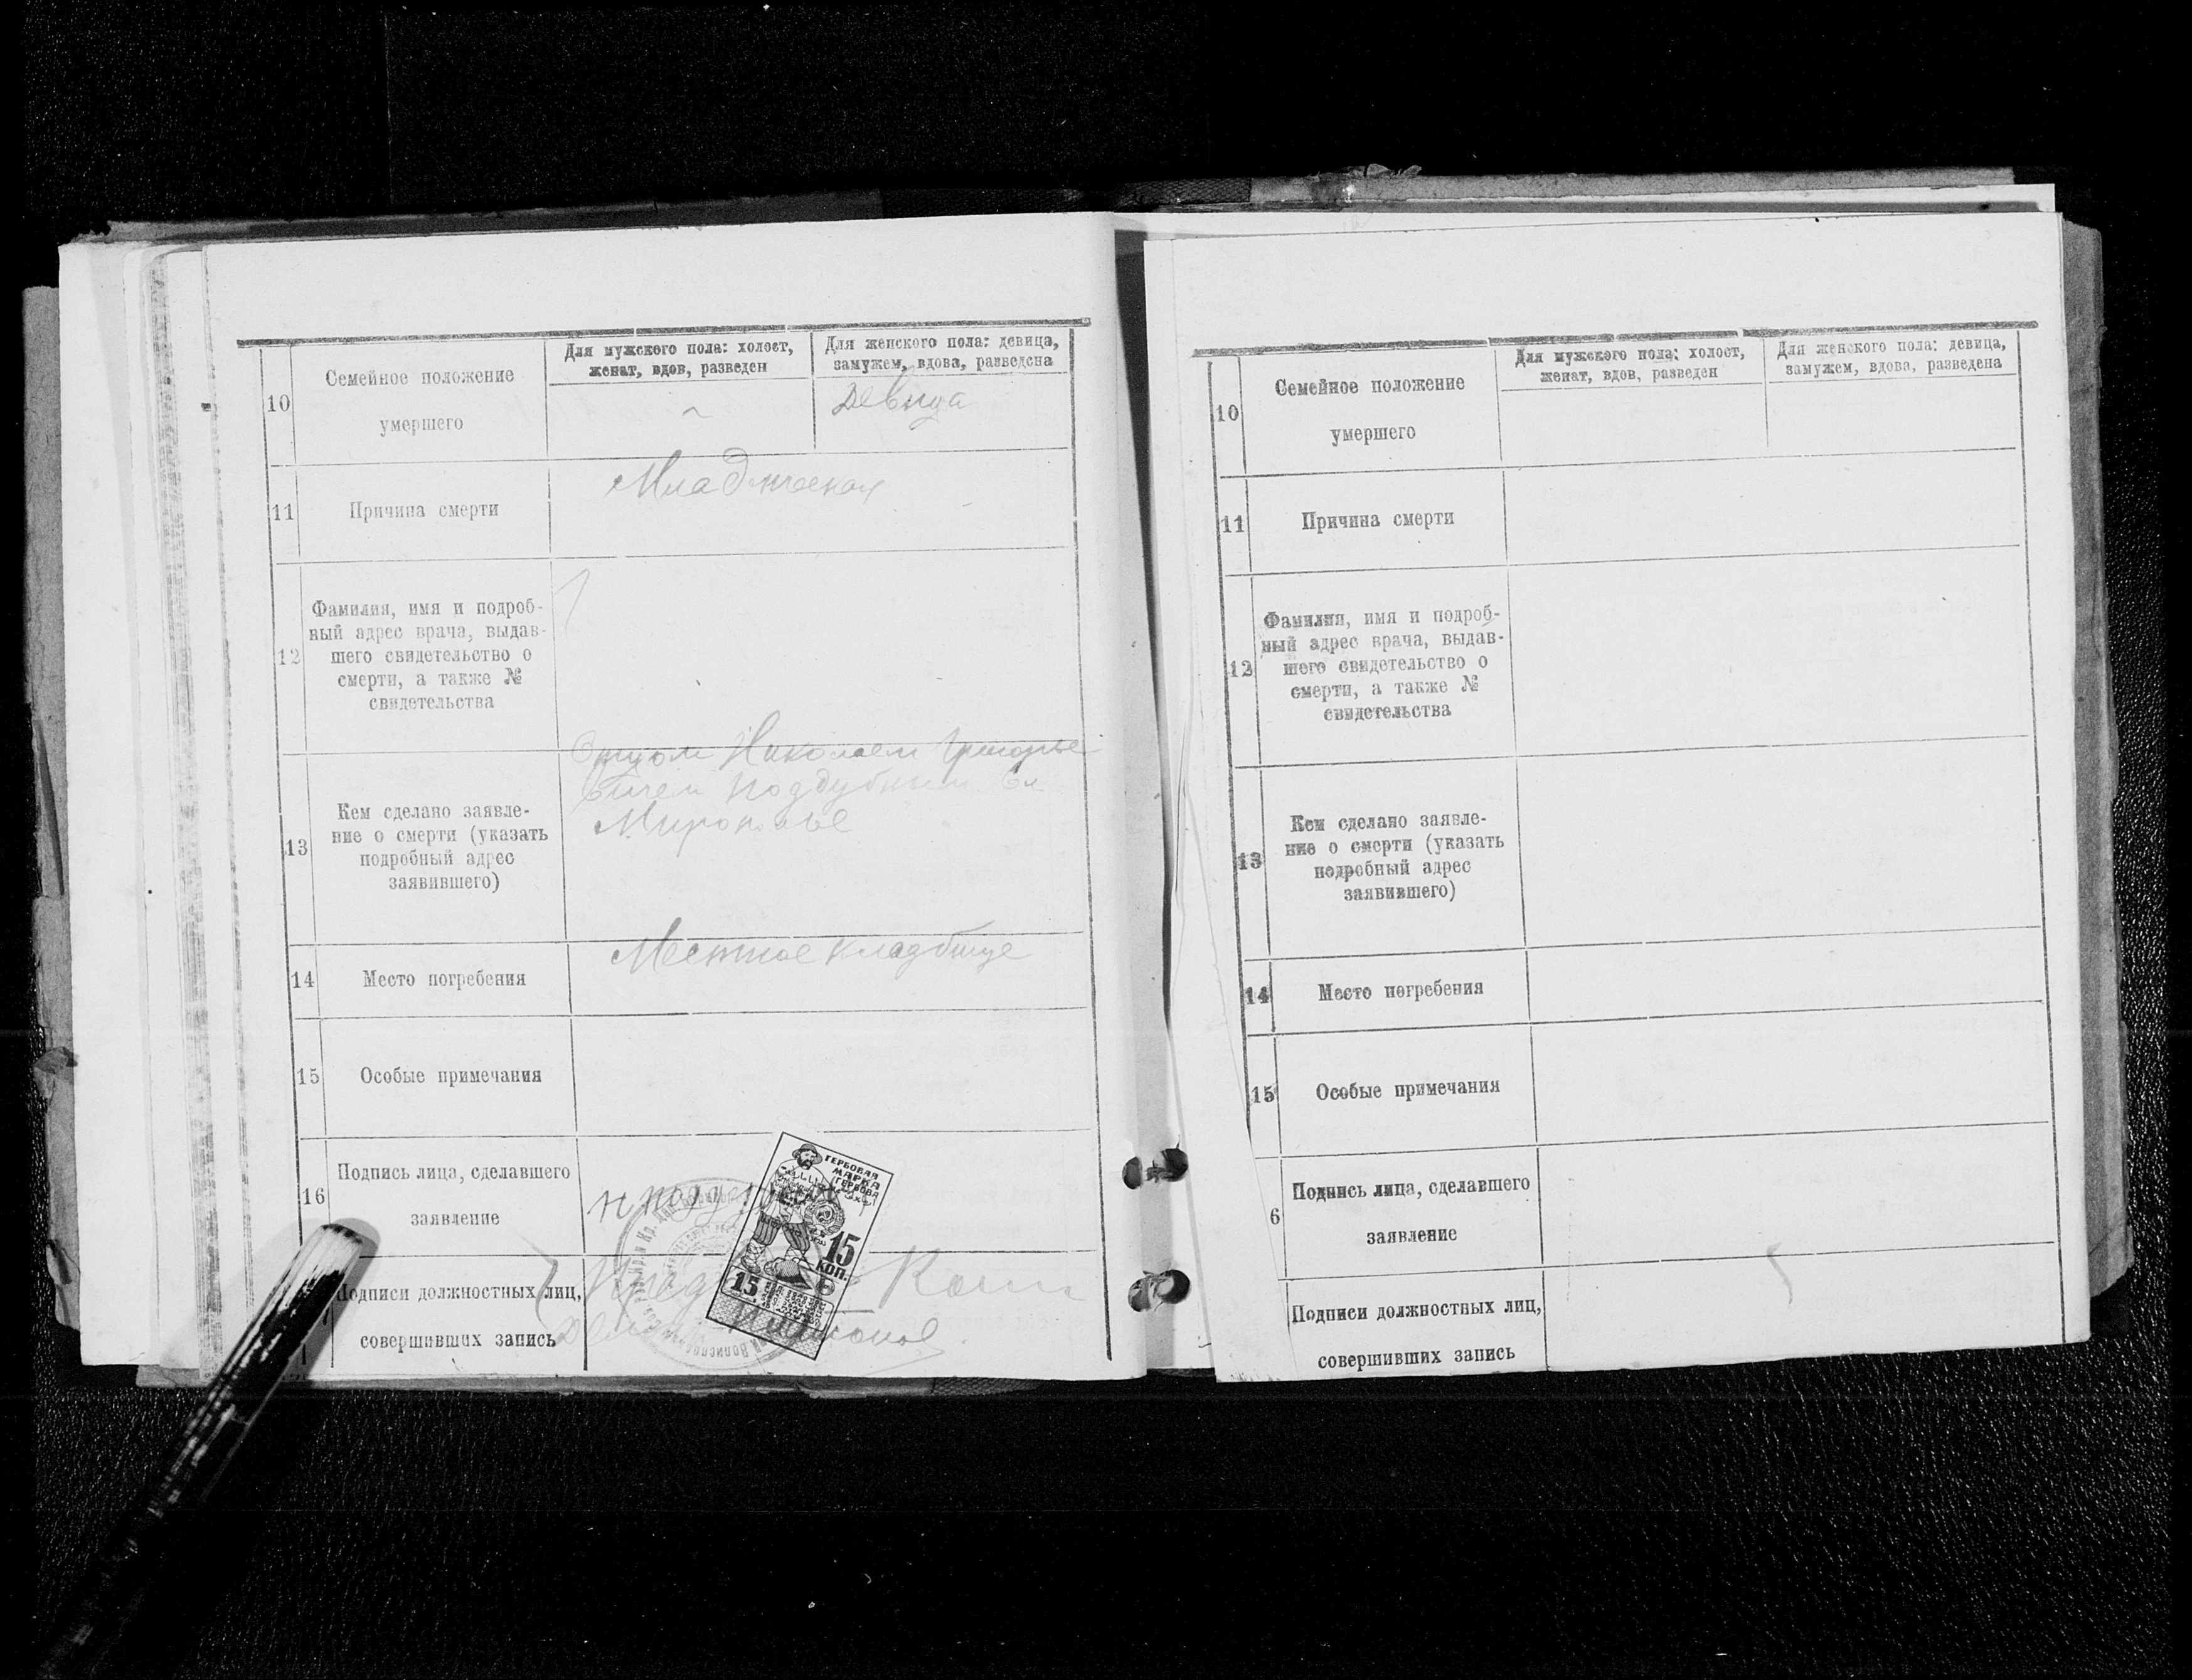 10
Семейное положение
умершего
Для мужского пола: холост,
женат, вдов, разведен
Для женского пола: девица,
замужем, вдова, разведена
Девица
11
Причина смерти
Младенческая
12
Фамилия, имя и подроб-
ный адрес врача, выдав-
шего свидетельство о
смерти, а также №
свидетельства
13
Кем сделано заявле-
ние о смерти (указать
подробный адрес
заявившего)
Отцом Николаем Григорье
вичем Поддубным
Мирополье
14
Место погребения
Местное кладбище
15
Особые примечания
16
Подпись лица, сделавшего
заявление
Подписи должностных лиц,
совершивших запись
ГЕРБОВАЯ
МАРКА
15
КОП.
15
10
Семейное положение
умершего
Для мужского пола: холост,
женат, вдов, разведен
Для женского пола: девица,
замужем, вдова, разведена
11
Причина смерти
12
Фамилия, имя и подроб-
ный адрес врача, выдав-
шего свидетельство о
смерти, а также №
свидетельства
13
Кем сделано заявле-
ние о смерти (указать
подробный адрес
заявившего)
14
Место погребения
15
Особые примечания
6
Подпись лица, сделавшего
заявление
Подписи должностных лиц,
совершивших запись